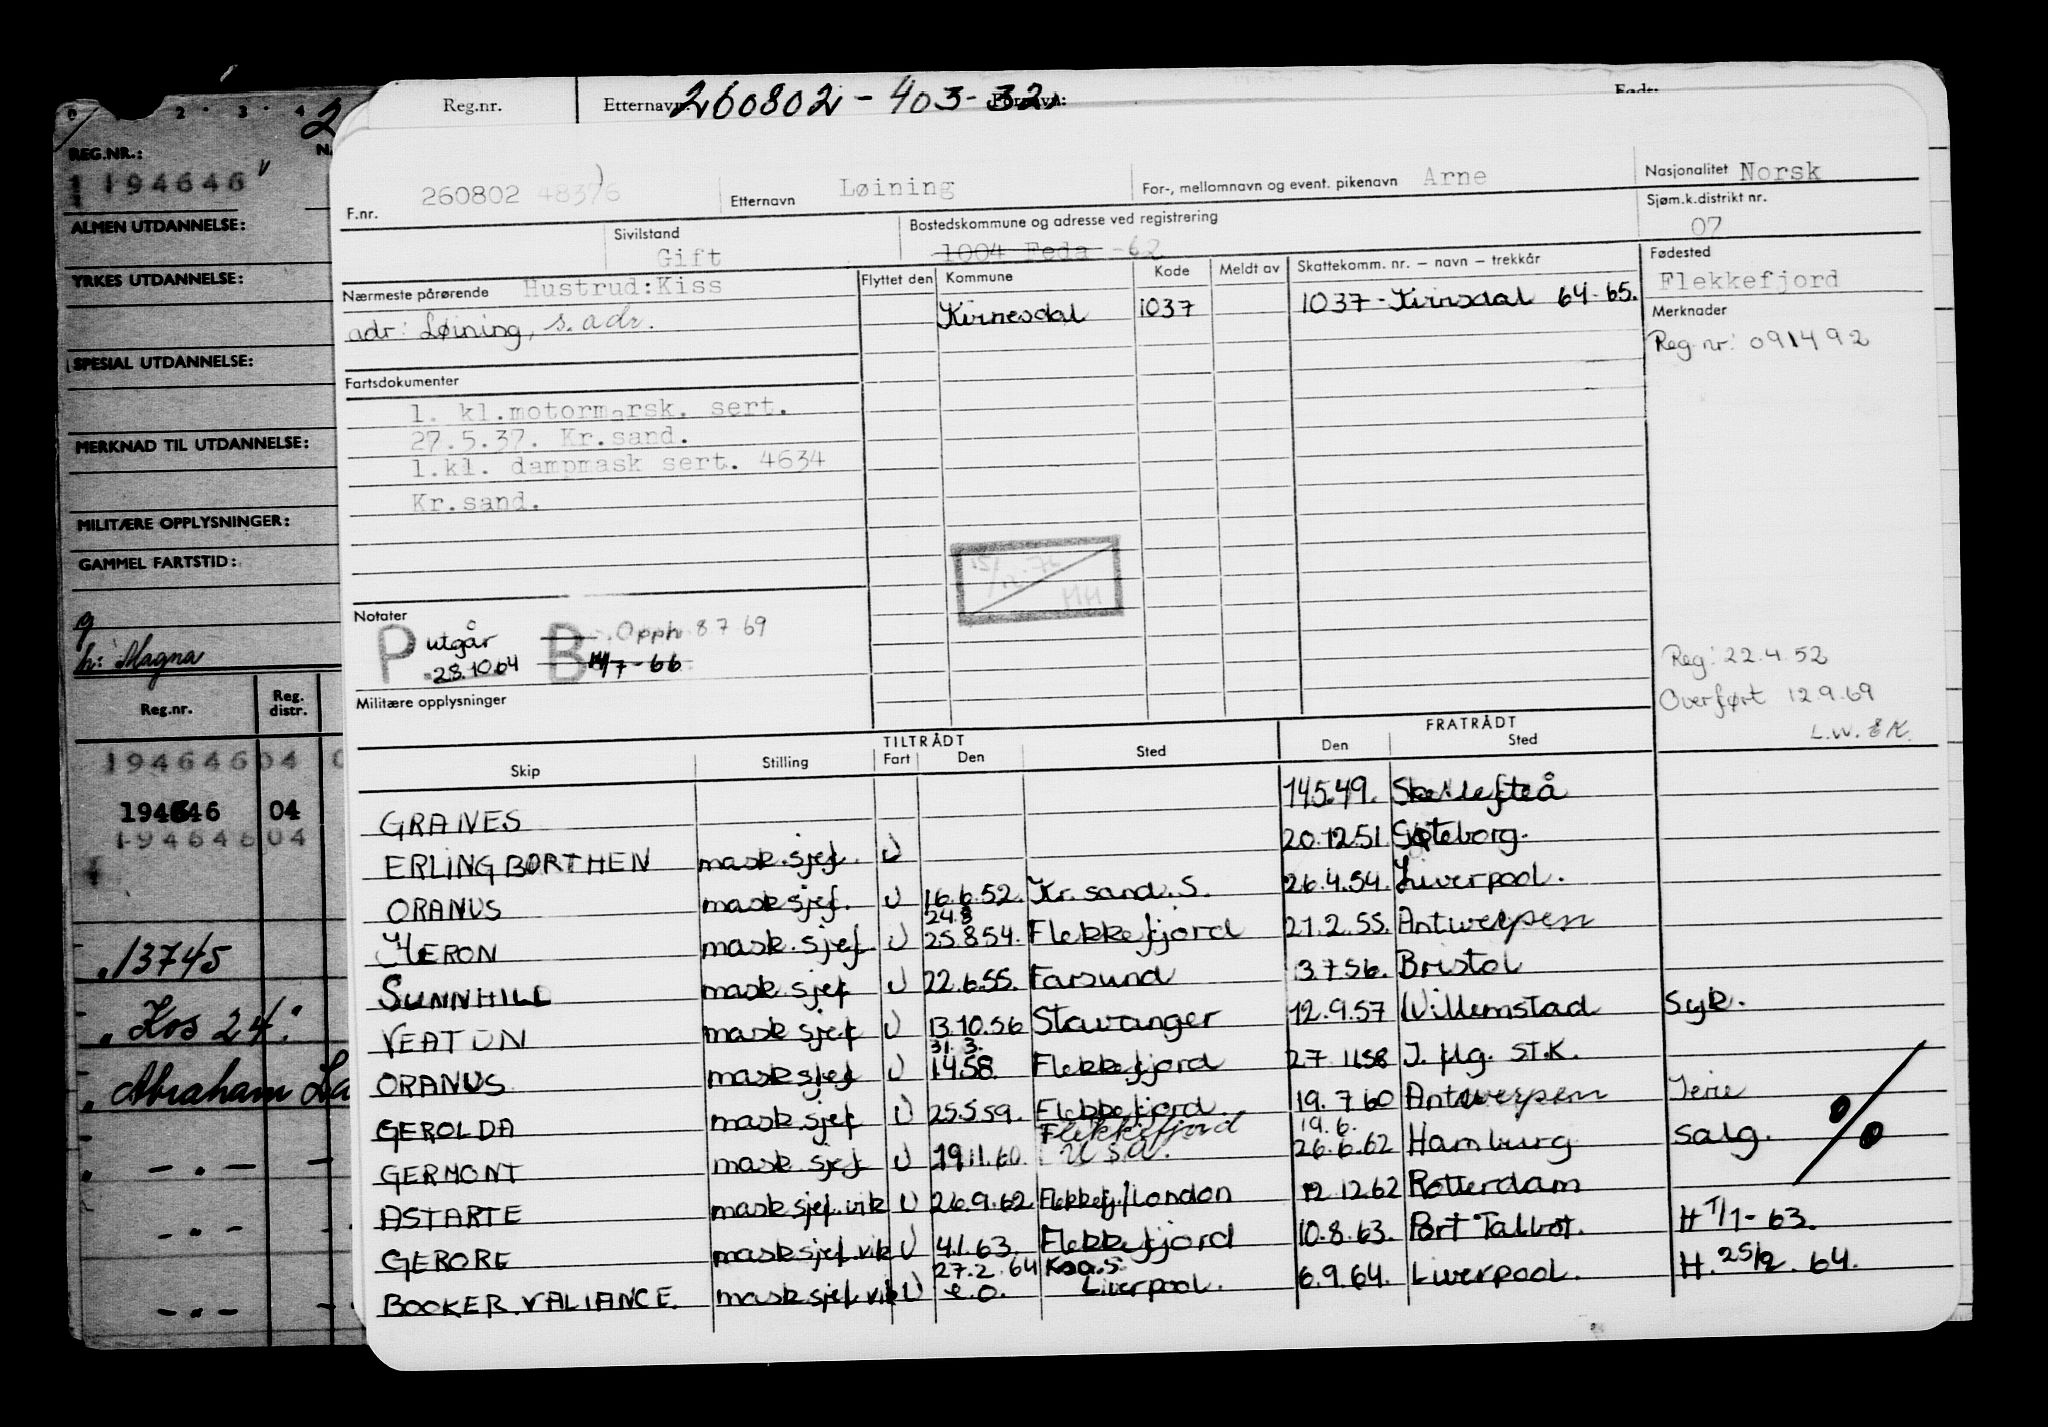 Reg.nr. Etternavn: 260802 - 403-32, Fornavn: Født:
F.nr. 260802 48376 Etternavn Løining For-, mellomnavn og event. pikenavn Arne Nasjonalitet Norsk
Sivilstand Gift Bostedskommune og adresse ved registrering 1004 Feda -62 Sjøm.k.distrikt nr. 07
Nærmeste pårørende Hustrud: Kiss Flyttet den Kommune Kode Meldt av Skattekomm. nr. – navn – trekkår Fødested Flekkefjord
adr: Løining, s. adr. Kvinesdal 1037 1037 - Kvinsdal 64-65. Merknader
Reg. nr: 091492
Fartsdokumenter
1. kl.motormarsk. sert.
27.5.37. Kr.sand.
1.kl. dampmask sert. 4634
Kr.sand.
15/12.72 HH
Notater
P utgår 28.10.64 B Opph 8 7 69
14/7-66
Militære opplysninger
Reg: 22.4.52
Overført 12.9.69
L.W. EK.
TILTRÅDT FRATRÅDT
Skip Stilling Fart Den Sted Den Sted
GRANES 14.5.49. Skellefteå
ERLING BORTHEN mask.sjef. U 20.12.51. Gøteborg.
ORANUS mask sjef. U 16.6.52. Kr. sand. S. 26.4.54. Liverpool.
24.8
HERON mask. sjef U 25.8.54. Flekkefjord 21.2.55. Antwerpen
SUNNHILL mask sjef U 22.6.55. Farsund 3.7.56. Bristol
VEATON mask sjef U 13.10.56 Stavanger 12.9.57 Willemstad Syk.
31.3.
ORANUS mask sjef U 1.4.58. Flekkefjord 27.11.58 I. flg. ST.K.
GEROLDA mask sjef U 25.5.59. Flekkefjord. 19.7.60 Antwerpen Ferie
Flekkefjord 19.6.
GERMONT mask sjef U 19.11.60. U S A. 26.6.62 Hamburg salg. %
ASTARTE mask sjef. vik U 26.9.62 Flekkefj./London 12.12.62 Rotterdam
GERORE mask sjef. vik U 4.1.63. Flekkefjord 10.8.63. Port Talbot. H 7/1-63.
27.2.64 Kr.a.S
BOOKER VALIANCE. mask sjef vik U e.o. Liverpool. 6.9.64. Liverpool. H. 25/2. 64.
2 3 4
REG.NR.:
194646
ALMEN UTDANNELSE:
YRKES UTDANNELSE:
SPESIAL UTDANNELSE:
MERKNAD TIL UTDANNELSE:
MILITÆRE OPPLYSNINGER:
GAMMEL FARTSTID:
g
h: Magna
Reg.nr. Reg. distr.
194646 04
194646 04
194646 04
13745
"Kos 24."
Abraham La